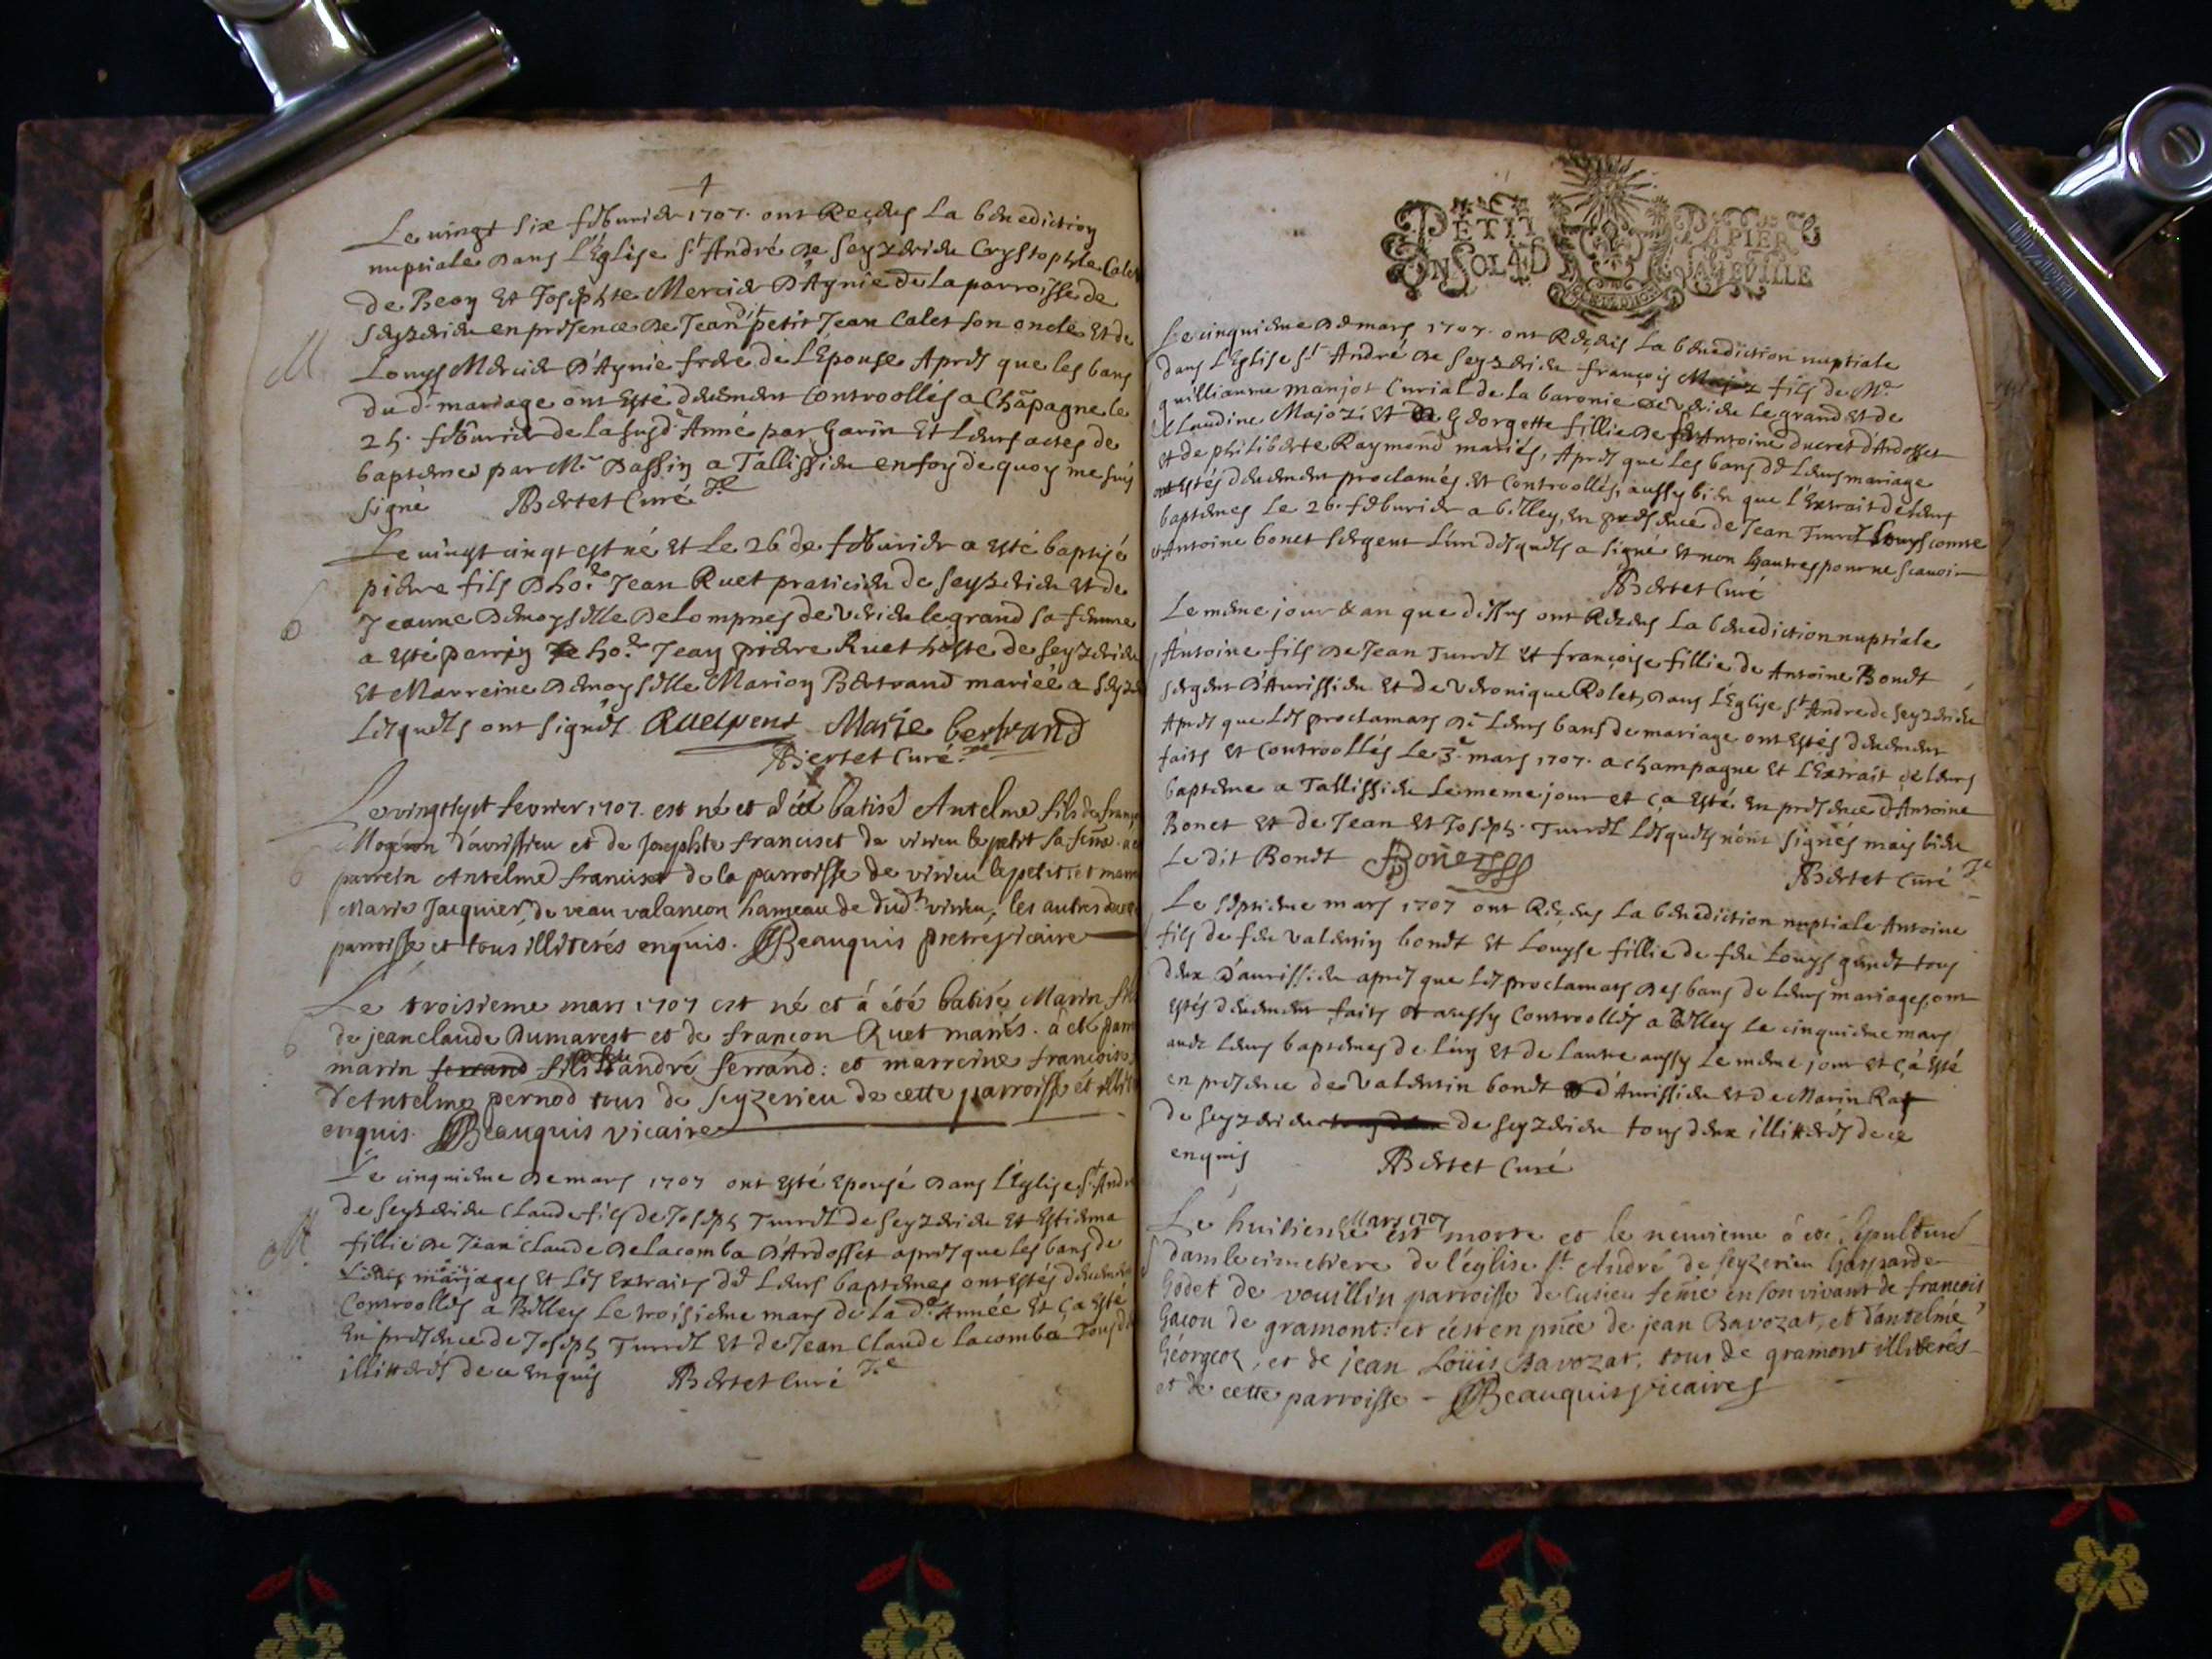 Le vingt six febvrier 1707. ont Receus La benediction
nuptiale dans L'Eglise St André de Seyzerieu Crystophle Calet
de Beon Et Josephte Mercier D'Aynie de la parroisse de
Seyzerieu en presence de Jean dit petit Jean Calet son oncle Et de
Louys Mercier D'Aynie frere de L'Epouse Apres que les bans
du d. mariage ont Esté deuement Controollés a Chãpagne le
25. febvrier de la susd. Anné par Garin Et Leurs actes de
baptemes par Mr. Bassin a Tallissieu en foy de quoy me suis
signé Bertet Curé
M
Le vingt cinq est né Et Le 26 de febvrier a Esté baptisé
pierre fils d'ho. Jean Ruet praticien de Seyzerieu Et de
Jeanne Demoyselle Delompnes de Virieu le grand sa femme
a Esté parrin ho. Jean pierre Ruet hoste de Seyzerieu
Et Marreine Demoyselle Marion Bertrand mariée a
Lesquels ont signés Marie bertrand
Bertet Curé
6
Le vingthuit fevrier 1707. est né et été batisé Antelme fils de
d'avrissieu et de Josephte franciset de virieu le petit sa feme.
parrein Antelme franciset de la parroisse de virieu le petit: et
Marie Jacquier, de veau valancon hameau de dud.t virieu, les autres
parroisse et tous illiterés enquis. Beauquis pretre vicaire
6
Le troisieme mars 1707 est né et á été batisé Marin
de jean claude Dumarest et de françon Ruet mariés. á eté
marin ferrand fils de feu andré ferrand: et marreine francoise
d'Antelme pernod tous de Seyzerieu de cette parroisse et
enquis. Beauquis vicaire
6
Le cinquieme de mars 1707 ont Esté Epousé dans L'Eglise St
de Seyzerieu Claude fils de Joseph Turrel de Seyzerieu Et Estiema
fillie de Jean Claude Delacomba D'Ardosset apres que les bans de
Leurs mariages Et Les Extraits de Leurs baptemes ont Estés
Controollés a Belley Le troisieme mars de la d. Année Et ça Esté
En presence de Joseph Turrel Et de Jean Claude Lacomba
illitterés de ce Enquis Bertet Curé
M
PETIT PAPIER
UN SOL 4 D LA FEVILLE
Le cinquieme de mars 1707. ont Receus La benediction nuptiale
dans L'Eglise St André de Seyzerieu françois fils de Me
guillianme manjot Curial de la baronie de Virieu Le grand Et de
Claudine Et Georgette fillie de Antoine ducret d'Ardosset
Et de philiberte Raymond mariés, Apres que Les bans de Leurs mariage
ont Estés deuement proclamés Et Controollés, aussy bien que L'Extrait de leurs
baptemes Le 26. febvrier a billey, en presence de Jean Turrel
Antoine bonet sergent L'un desquels a signé Et non Lautre pour ne scavoir
Bertet Curé
Le méme jour & an que dessus ont Receus La benediction nuptiale
Antoine fils de Jean Turrel Et françoise fillie de Antoine Bonet
sergent D'Aurissieu Et de Veronique Rolet, Dans L'Eglise St Andre de Seyzerieu
Apres que Les proclamats de Leurs bans de mariage ont Estés deuement
faits Et Controollés Le 3e. mars 1707. a champagne Et L'Extrait de Leurs
baptéme a Tallissieu Le meme jour et ça Esté En presence d'Antoine
Bonet Et de Jean Et Joseph Turrel Lesquels n'ont signés mais bien
Le dit Bonet Bonet
Bertet Curé
Le septieme mars 1707 ont Receus La benediction nuptiale Antoine
fils de feu Valentin bonet Et Louyse fillie de feu Louys tous
deux D'aurissieu apres que Les proclamats des bans de Leurs mariages, ont
Estés deuement faits Et aussy Controollés a Belley Le cinquieme mars
avec Leurs baptemes de L'un Et de Lautre aussy Le méme jour Et ça Esté
en presence de Valentin bonet d'Aurissieu Et de Marin
de Seyzerieu de Seyzerieu tous deux illitterés de ce
enquis Bertet Curé
Le huitieme Mars 1707 est morte et le neuvieme á été Sepulturé
dans le cimetiere de l'église St. André de Seyzerieu Gasparde
Godet de vouillin parroisse de Cusieu femme en son vivant de francois
Gacon de gramont: et c'est en pñce de jean Bavozat, et d'antelme
Georgeot, et de jean Loüis Bavozat, tous de gramont illiterés
et de cette parroisse - Beauquis vicaire